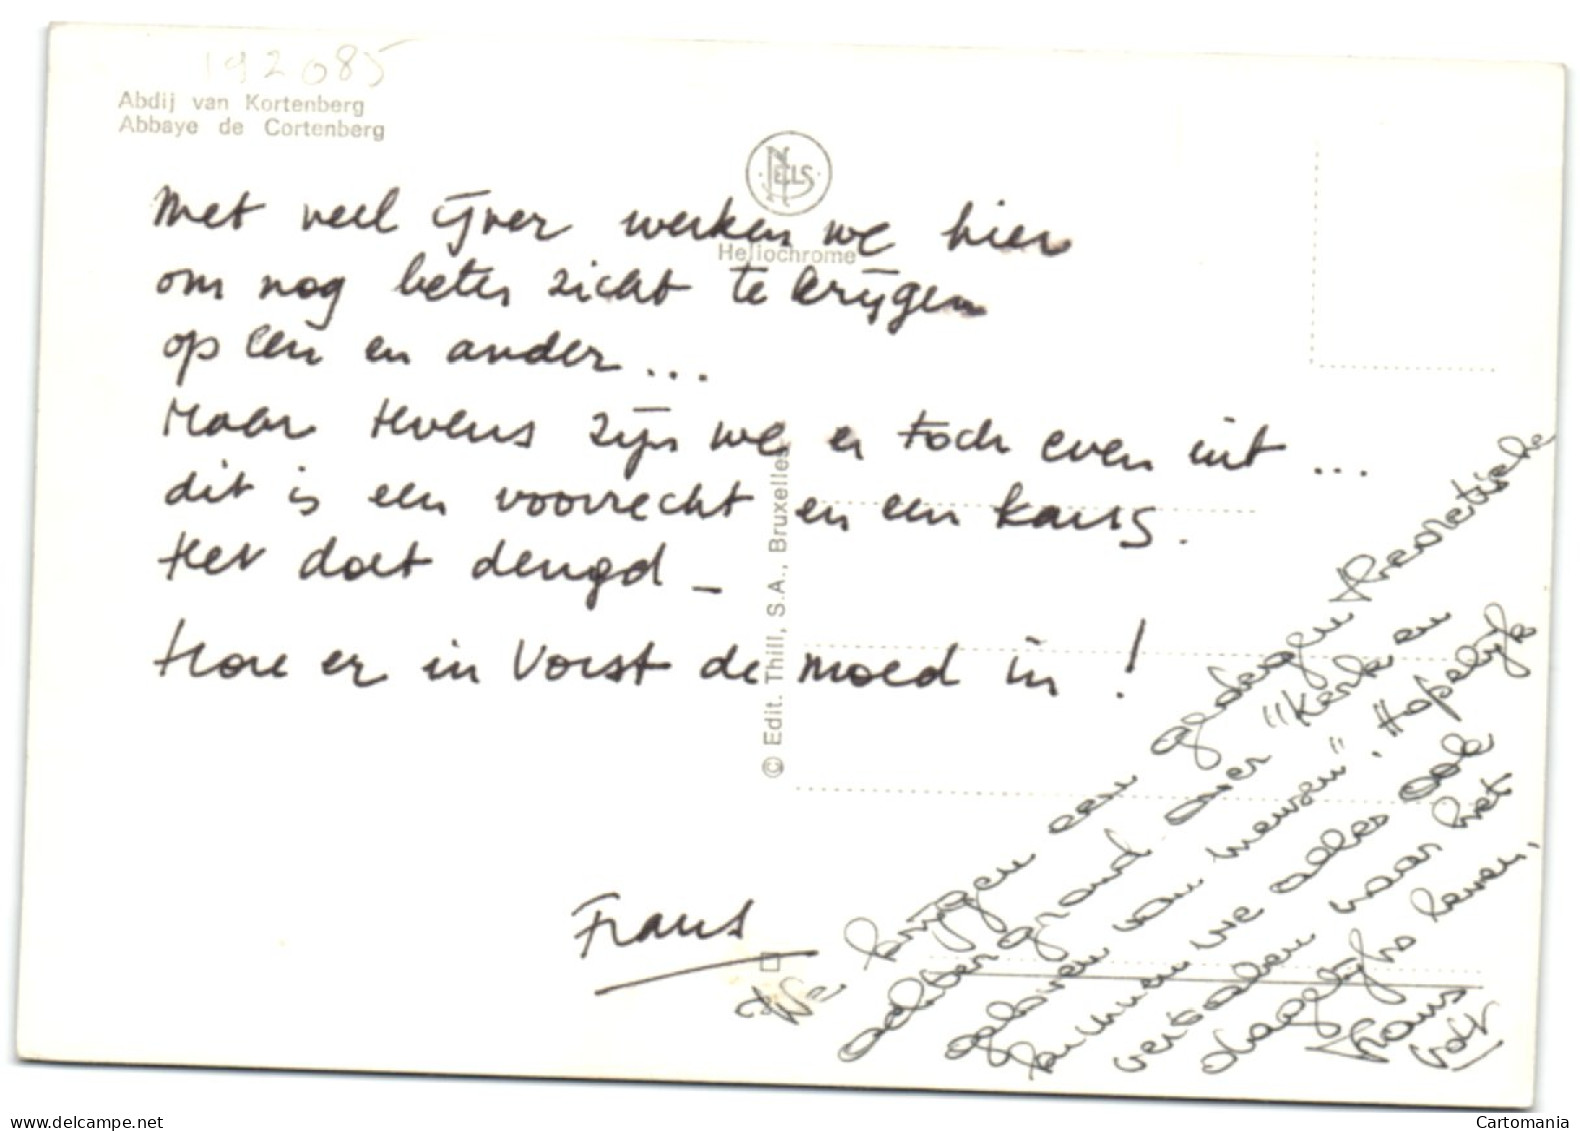 192085
Abdij van Kortenberg
Abbaye de Cortenberg
NELS
Heliochrome
Met veel ijver werken we hier
om nog beter zicht te krijgen
op een en ander...
Maar tevens zijn we er toch even uit...
dit is een voorrecht en een kans.
Het doet deugd –
Hou er in Vorst de moed in !
Frans
© Edit. Thill, S.A., Bruxelles
We krijgen een gedegen theoretische
achtergrond over "Kerk en
geloven van mensen". Hopelijk
kunnen we alles ook
vertalen naar het
dagelijks leven.
Frans
delcampe.net
Cartomania